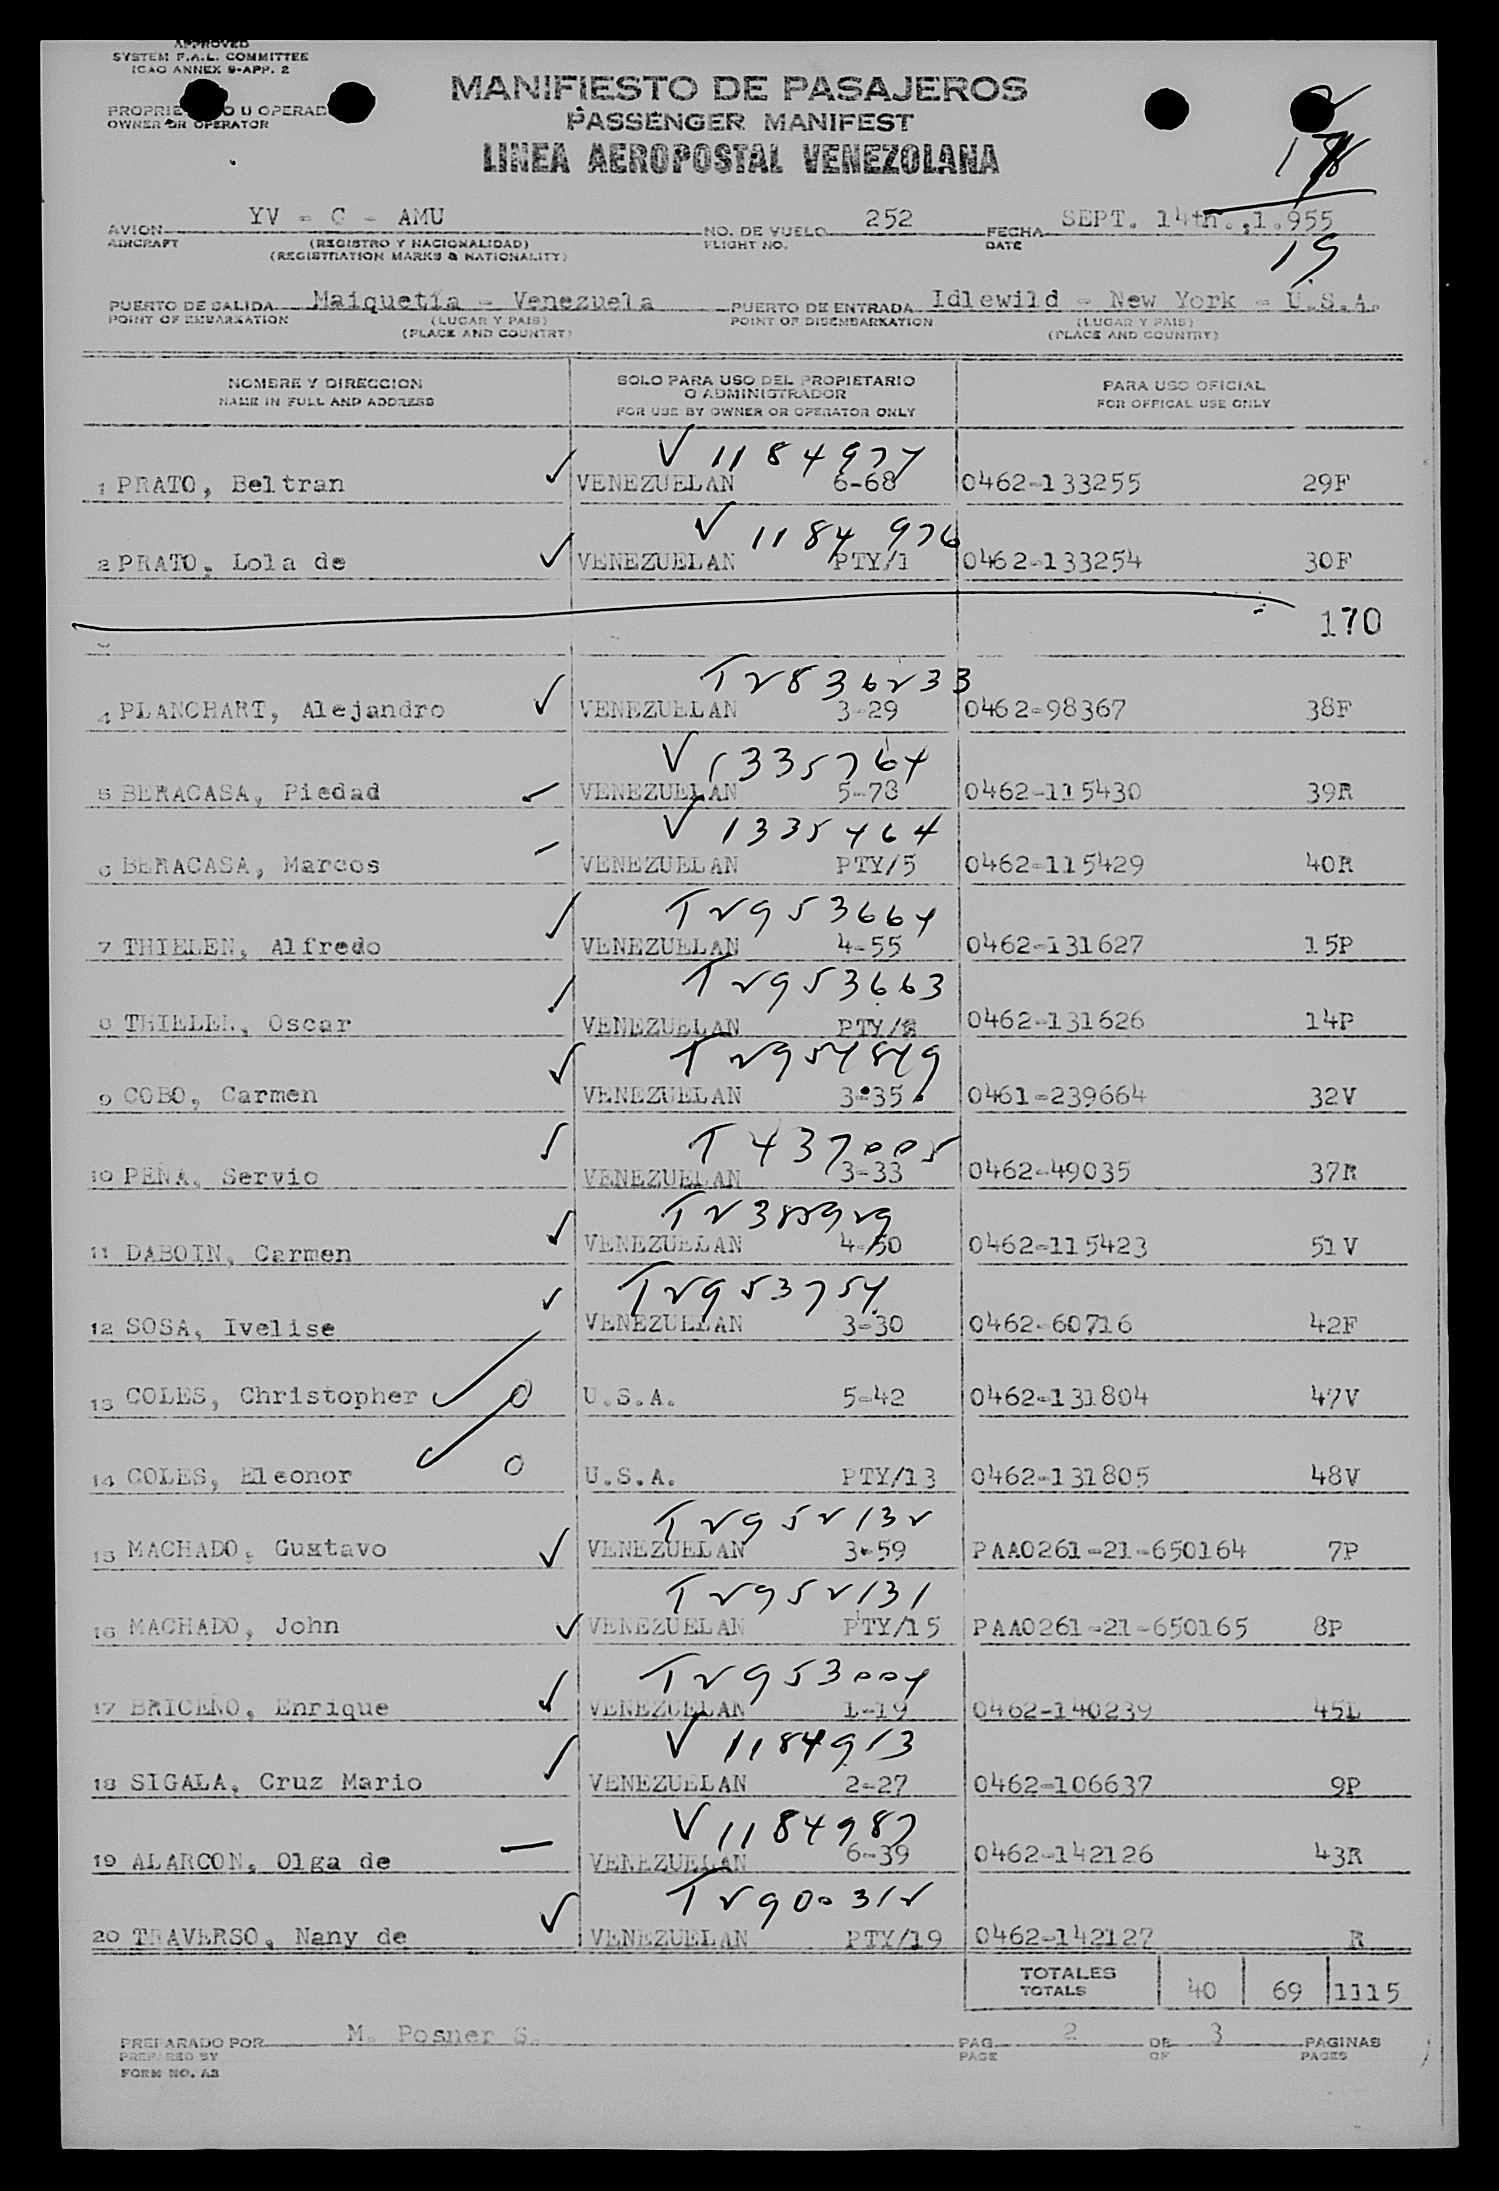 APPROVED
SYSTEM F.A.L. COMMITTEE
ICAO ANNEX 9-APP. 2
MANIFIESTO DE PASAJEROS
PASSENGER MANIFEST
LINEA AEROPOSTAL VENEZOLANA
OWNER OR OPERATOR
AVION YV - C - AMU NO. DE VUELO 252 FECHA SEPT. 14th.,1.955
AIRCRAFT (REGISTRO Y NACIONALIDAD) FLIGHT NO. DATE
(REGISTRATION MARKS & NATIONALITY)
19
PUERTO DE SALIDA Maiquetía - Venezuela PUERTO DE ENTRADA Idlewild - New York - U.S.A.
POINT OF EMBARKATION (LUGAR Y PAIS) POINT OF DISEMBARKATION (LUGAR Y PAIS)
(PLACE AND COUNTRY) (PLACE AND COUNTRY)
NOMBRE Y DIRECCION SOLO PARA USO DEL PROPIETARIO O ADMINISTRADOR PARA USO OFICIAL
NAME IN FULL AND ADDRESS FOR USE BY OWNER OR OPERATOR ONLY FOR OFFICAL USE ONLY
V 1184977
1 PRATO, Beltran VENEZUELAN 6-68 0462-133255 29F
V 1184 976
2 PRATO, Lola de VENEZUELAN PTY/1 0462-133254 30F
170
T2836233
4 PLANCHART, Alejandro VENEZUELAN 3-29 0462-98367 38F
V 1335764
5 BERACASA, Piedad VENEZUELAN 5-78 0462-115430 39R
V 1335464
6 BERACASA, Marcos VENEZUELAN PTY/5 0462-115429 40R
T2953664
7 THIELEN, Alfredo VENEZUELAN 4-55 0462-131627 15P
T2953663
8 THIELEN, Oscar VENEZUELAN PTY/ 0462-131626 14P
T2954849
9 COBO, Carmen VENEZUELAN 3-35 0461-239664 32V
T 437005
10 PEÑA, Servio VENEZUELAN 3-33 0462-49035 37R
11 DABOIN, Carmen VENEZUELAN 4-50 0462-115423 51V
T2953754
12 SOSA, Ivelise VENEZUELAN 3-30 0462-60716 42F
13 COLES, Christopher O U.S.A. 5-42 0462-131804 47V
14 COLES, Eleonor O U.S.A. PTY/13 0462-131805 48V
T2952132
15 MACHADO, Gustavo VENEZUELAN 3-59 PAA0261-21-650164 7P
T2952131
16 MACHADO, John VENEZUELAN PTY/15 PAA0261-21-650165 8P
T2953004
17 BRICEÑO, Enrique VENEZUELAN 1-19 0462-140239 45L
V 1184913
18 SIGALA, Cruz Mario VENEZUELAN 2-27 0462-106637 9P
V 1184987
19 ALARCON, Olga de VENEZUELAN 6-39 0462-142126 43R
T2900312
20 TRAVERSO, Nany de VENEZUELAN PTY/19 0462-142127 R
TOTALES 40 69 1115
TOTALS
PREPARADO POR M. Posner S. PAG. 2 DE 3 PAGINAS
PREPARED BY PAGE OF PAGES
FORM NO. A3